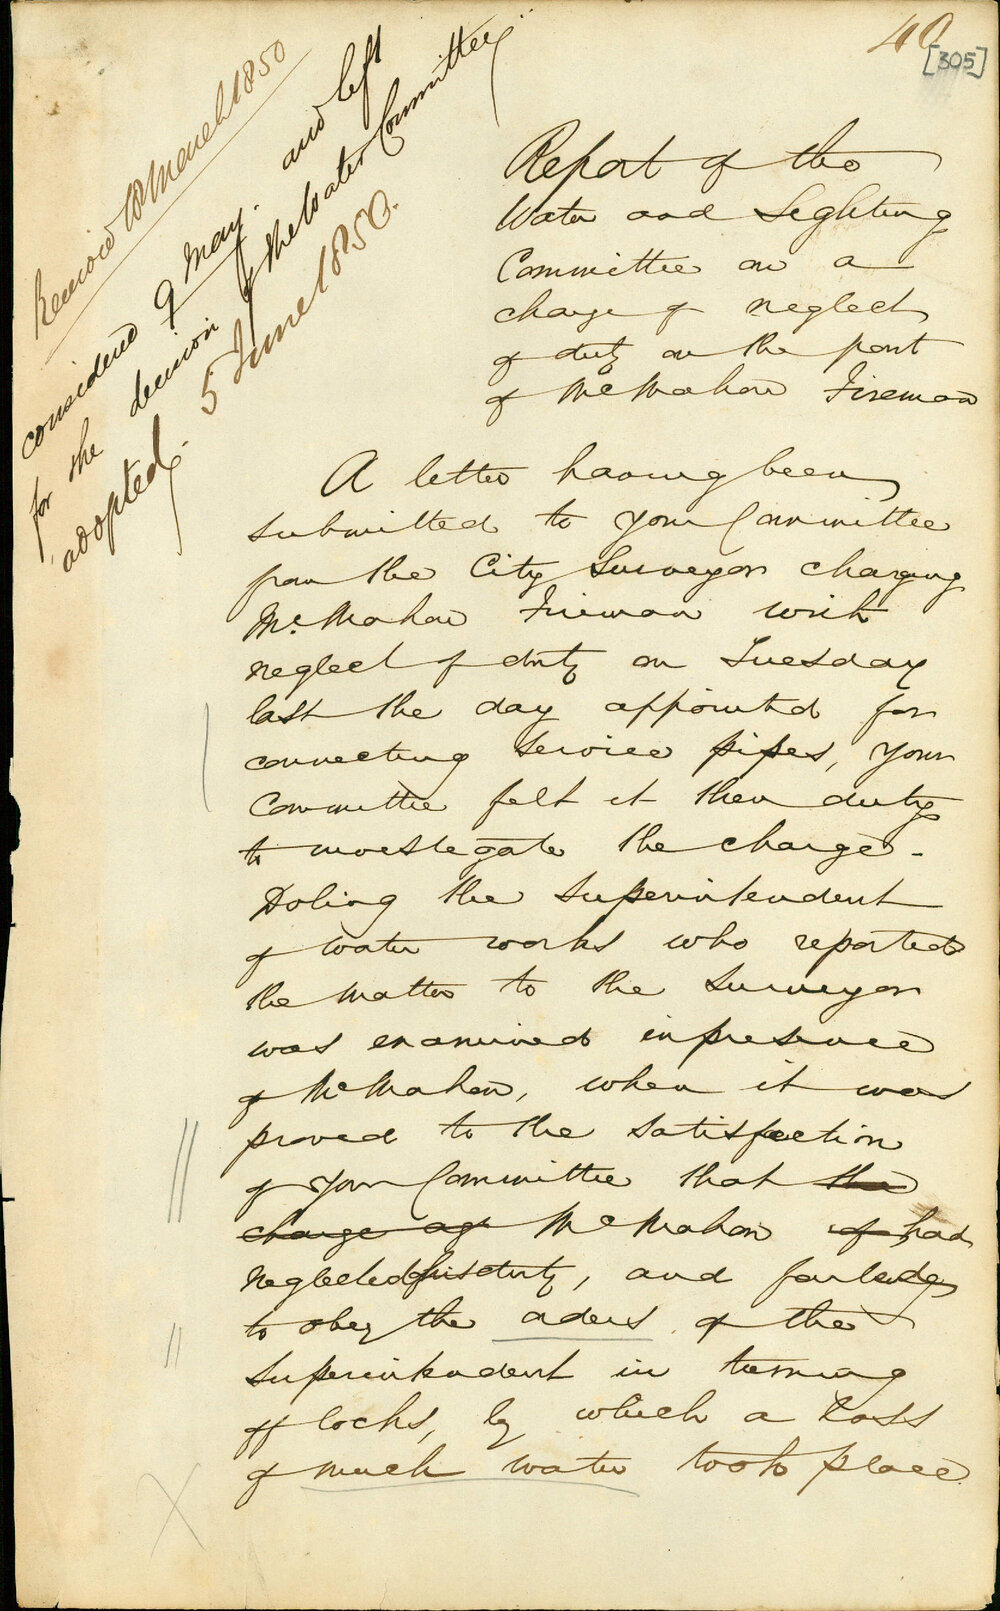 40
[305]
Received 18 March 1850
considered 9 May. and left
for the decision of the Water Committee
adopted. 5 June 1850.
Report of the
Water and Lighting
Committee on a
charge of neglect
of duty on the part
of McMahon Fireman
A letter having been
submitted to your Committee
from the City Surveyor charging
McMahon Fireman with
neglect of duty on Tuesday
last the day appointed for
connecting service pipes, your
Committee felt it their duty
to investigate the charge -
Doling the Superintendent
of Water Works who reported
the matter to the Surveyor
was examined in presence
of McMahon, when it was
proved to the satisfaction
of your Committee that the
charge ag McMahon of had
neglected his duty, and failed
to obey the orders of the
Superintendent in turning
off locks, by which a loss
of much water took place